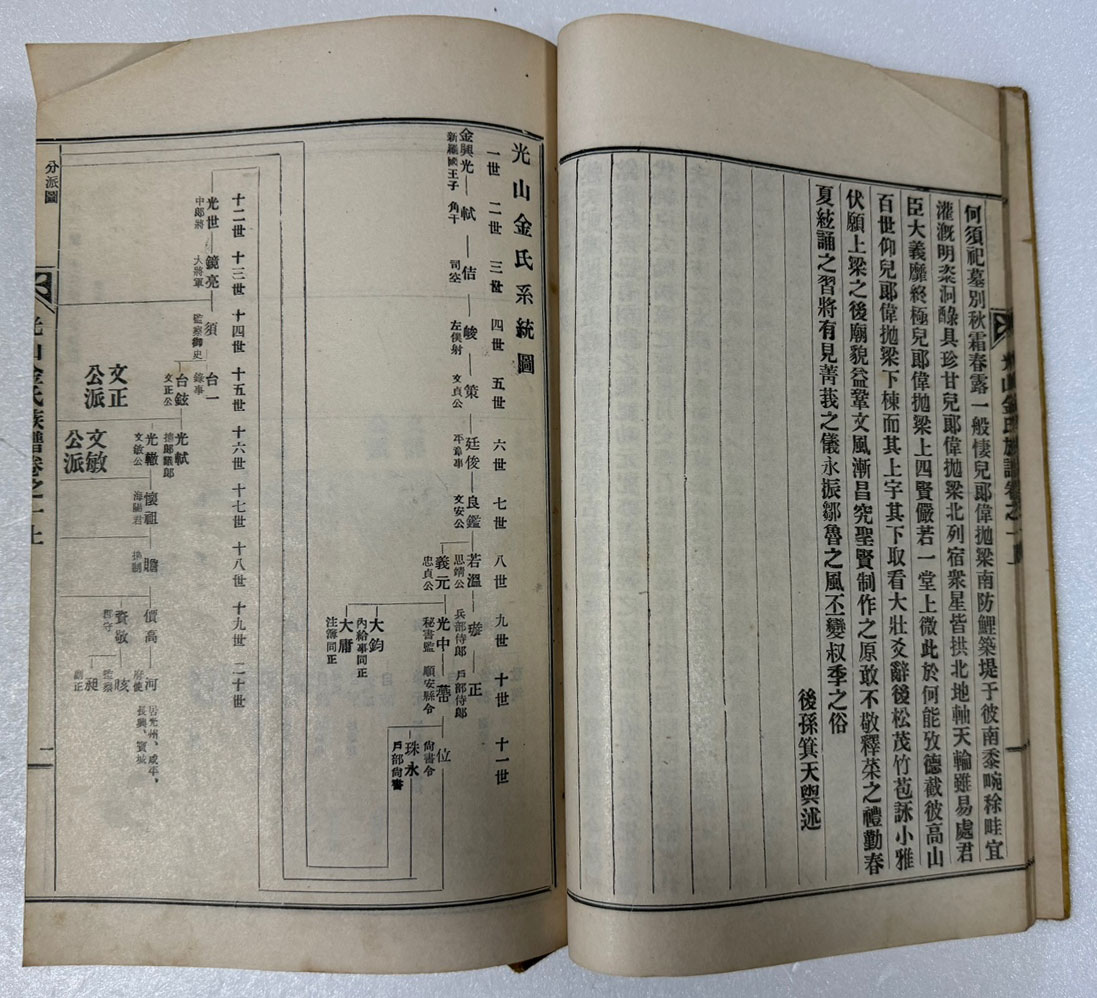 何須祀墓別秋霜春露一般悽兒郞偉抛梁南防鯉築堤于彼南黍畹稌畦宜
灌漑明粢洞酴具珍甘兒郞偉抛梁北列宿衆星皆拱北地軸天輪雖易處君
臣大義靡終極兒郞偉抛梁上四賢儼若一堂上微此於何能攷德截彼高山
百世仰兒郞偉抛梁下棟而其上宇其下取看大壯爻辭後松茂竹苞詠小雅
伏願上梁之後廟貌益鞏文風漸昌究聖賢制作之原敢不敬釋菜之禮勤春
夏絃誦之習將有見菁莪之儀永振鄒魯之風丕變叔季之俗
後孫箕天與述
光山金氏族譜卷之一
光山金氏系統圖
一世 二世 三世 四世 五世 六世 七世 八世 九世 十世 十一世
金興光 軾 佶 峻 策 廷俊 良鑑 若溫 璲 正
新羅國王子 角干 司空 左僕射 文貞公 平章事 文安公 思靖公 兵部侍郞 戶部侍郞
義元 光中 蔕 位
忠貞公 秘書監 順安縣令 尙書令
珠永
戶部尙書
大鈞
內給事同正
大庸
注簿同正
十二世 十三世 十四世 十五世 十六世 十七世 十八世 十九世 二十世
光世 鏡亮 須 台一
中郞將 大將軍 監察御史 錄事
台鉉 光軾
文正公
文正公派
光轍 懷祖 贍 價高 河
文敏公 海陽君
文敏公派
居光州、咸平、長興、寶城
賚敬
監察
昶
副正
分派圖
光山金氏族譜卷之一上
一